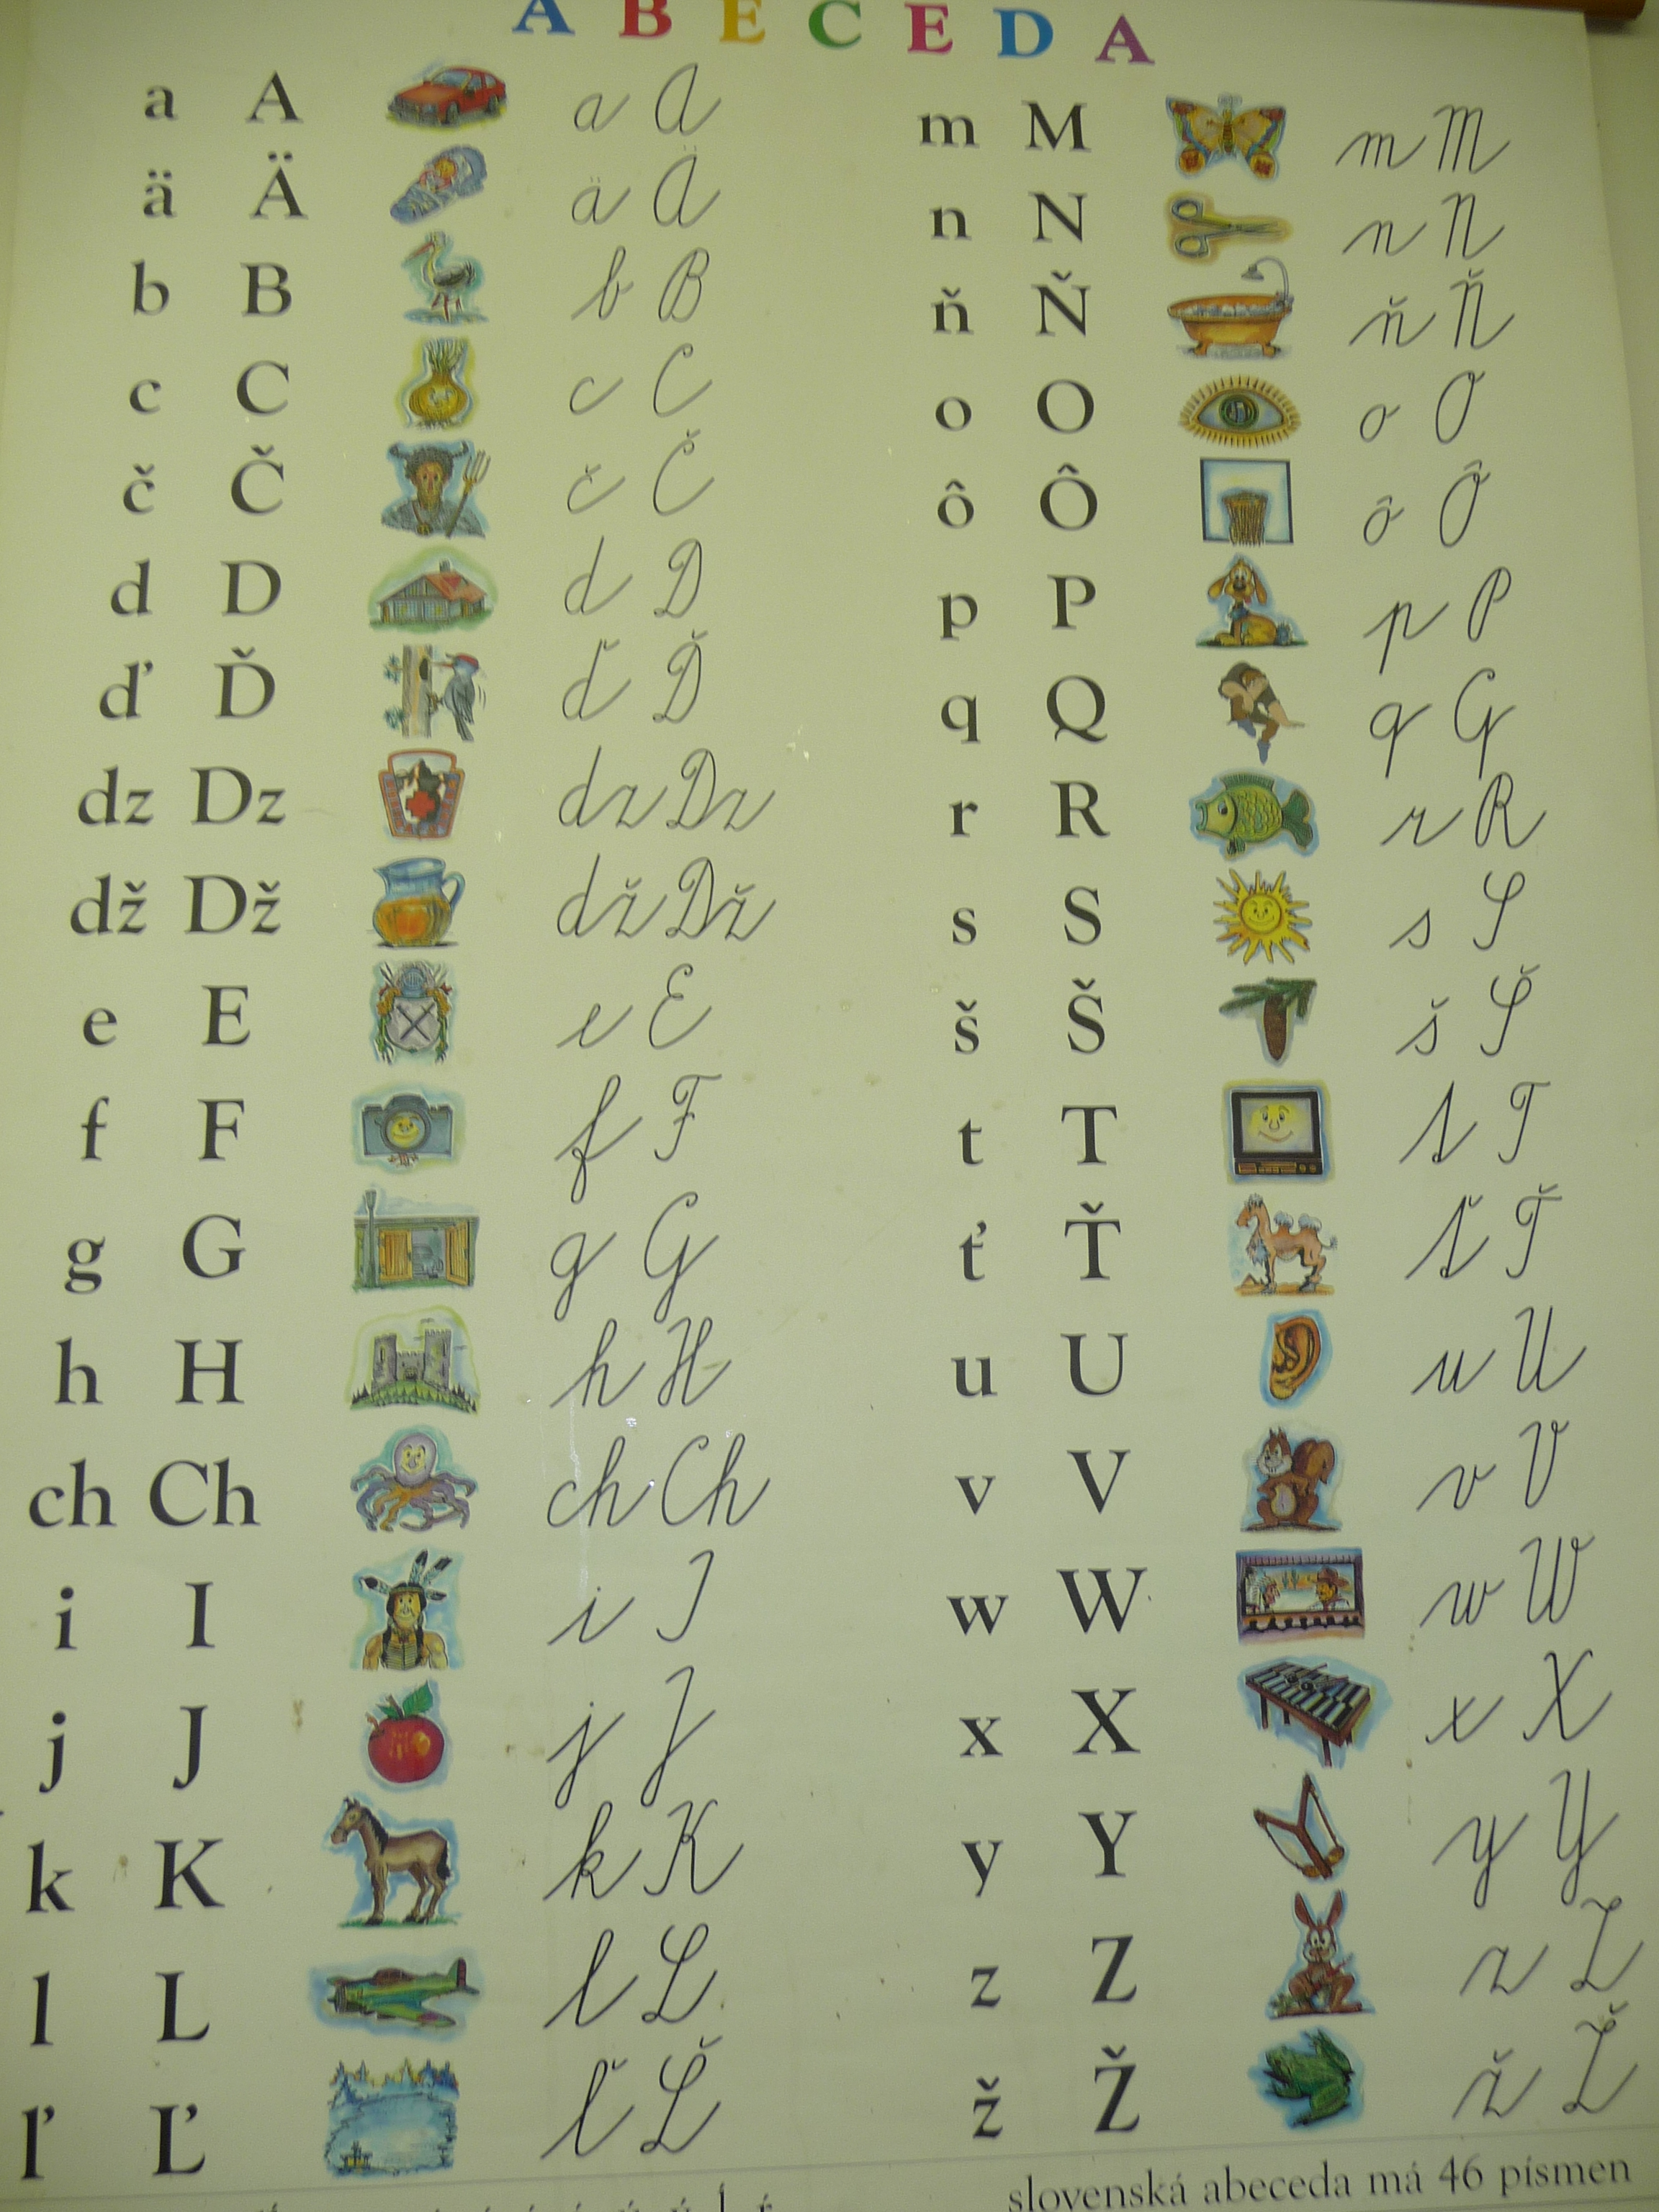 A B E C E D A
a A a A
ä Ä ä Ä
b B b B
c C c C
č Č č Č
d D d D
ď Ď ď Ď
dz Dz dz Dz
dž Dž dž Dž
e E e E
f F f F
g G g G
h H h H
ch Ch ch Ch
i I i I
j J j J
k K k K
l L l L
ľ Ľ ľ Ľ
m M m M
n N n N
ň Ň ň Ň
o O o O
ô Ô ô Ô
p P p P
q Q q Q
r R r R
s S s S
š Š š Š
t T t T
ť Ť ť Ť
u U u U
v V v V
w W w W
x X x X
y Y y Y
z Z z Z
ž Ž ž Ž
slovenská abeceda má 46 písmen